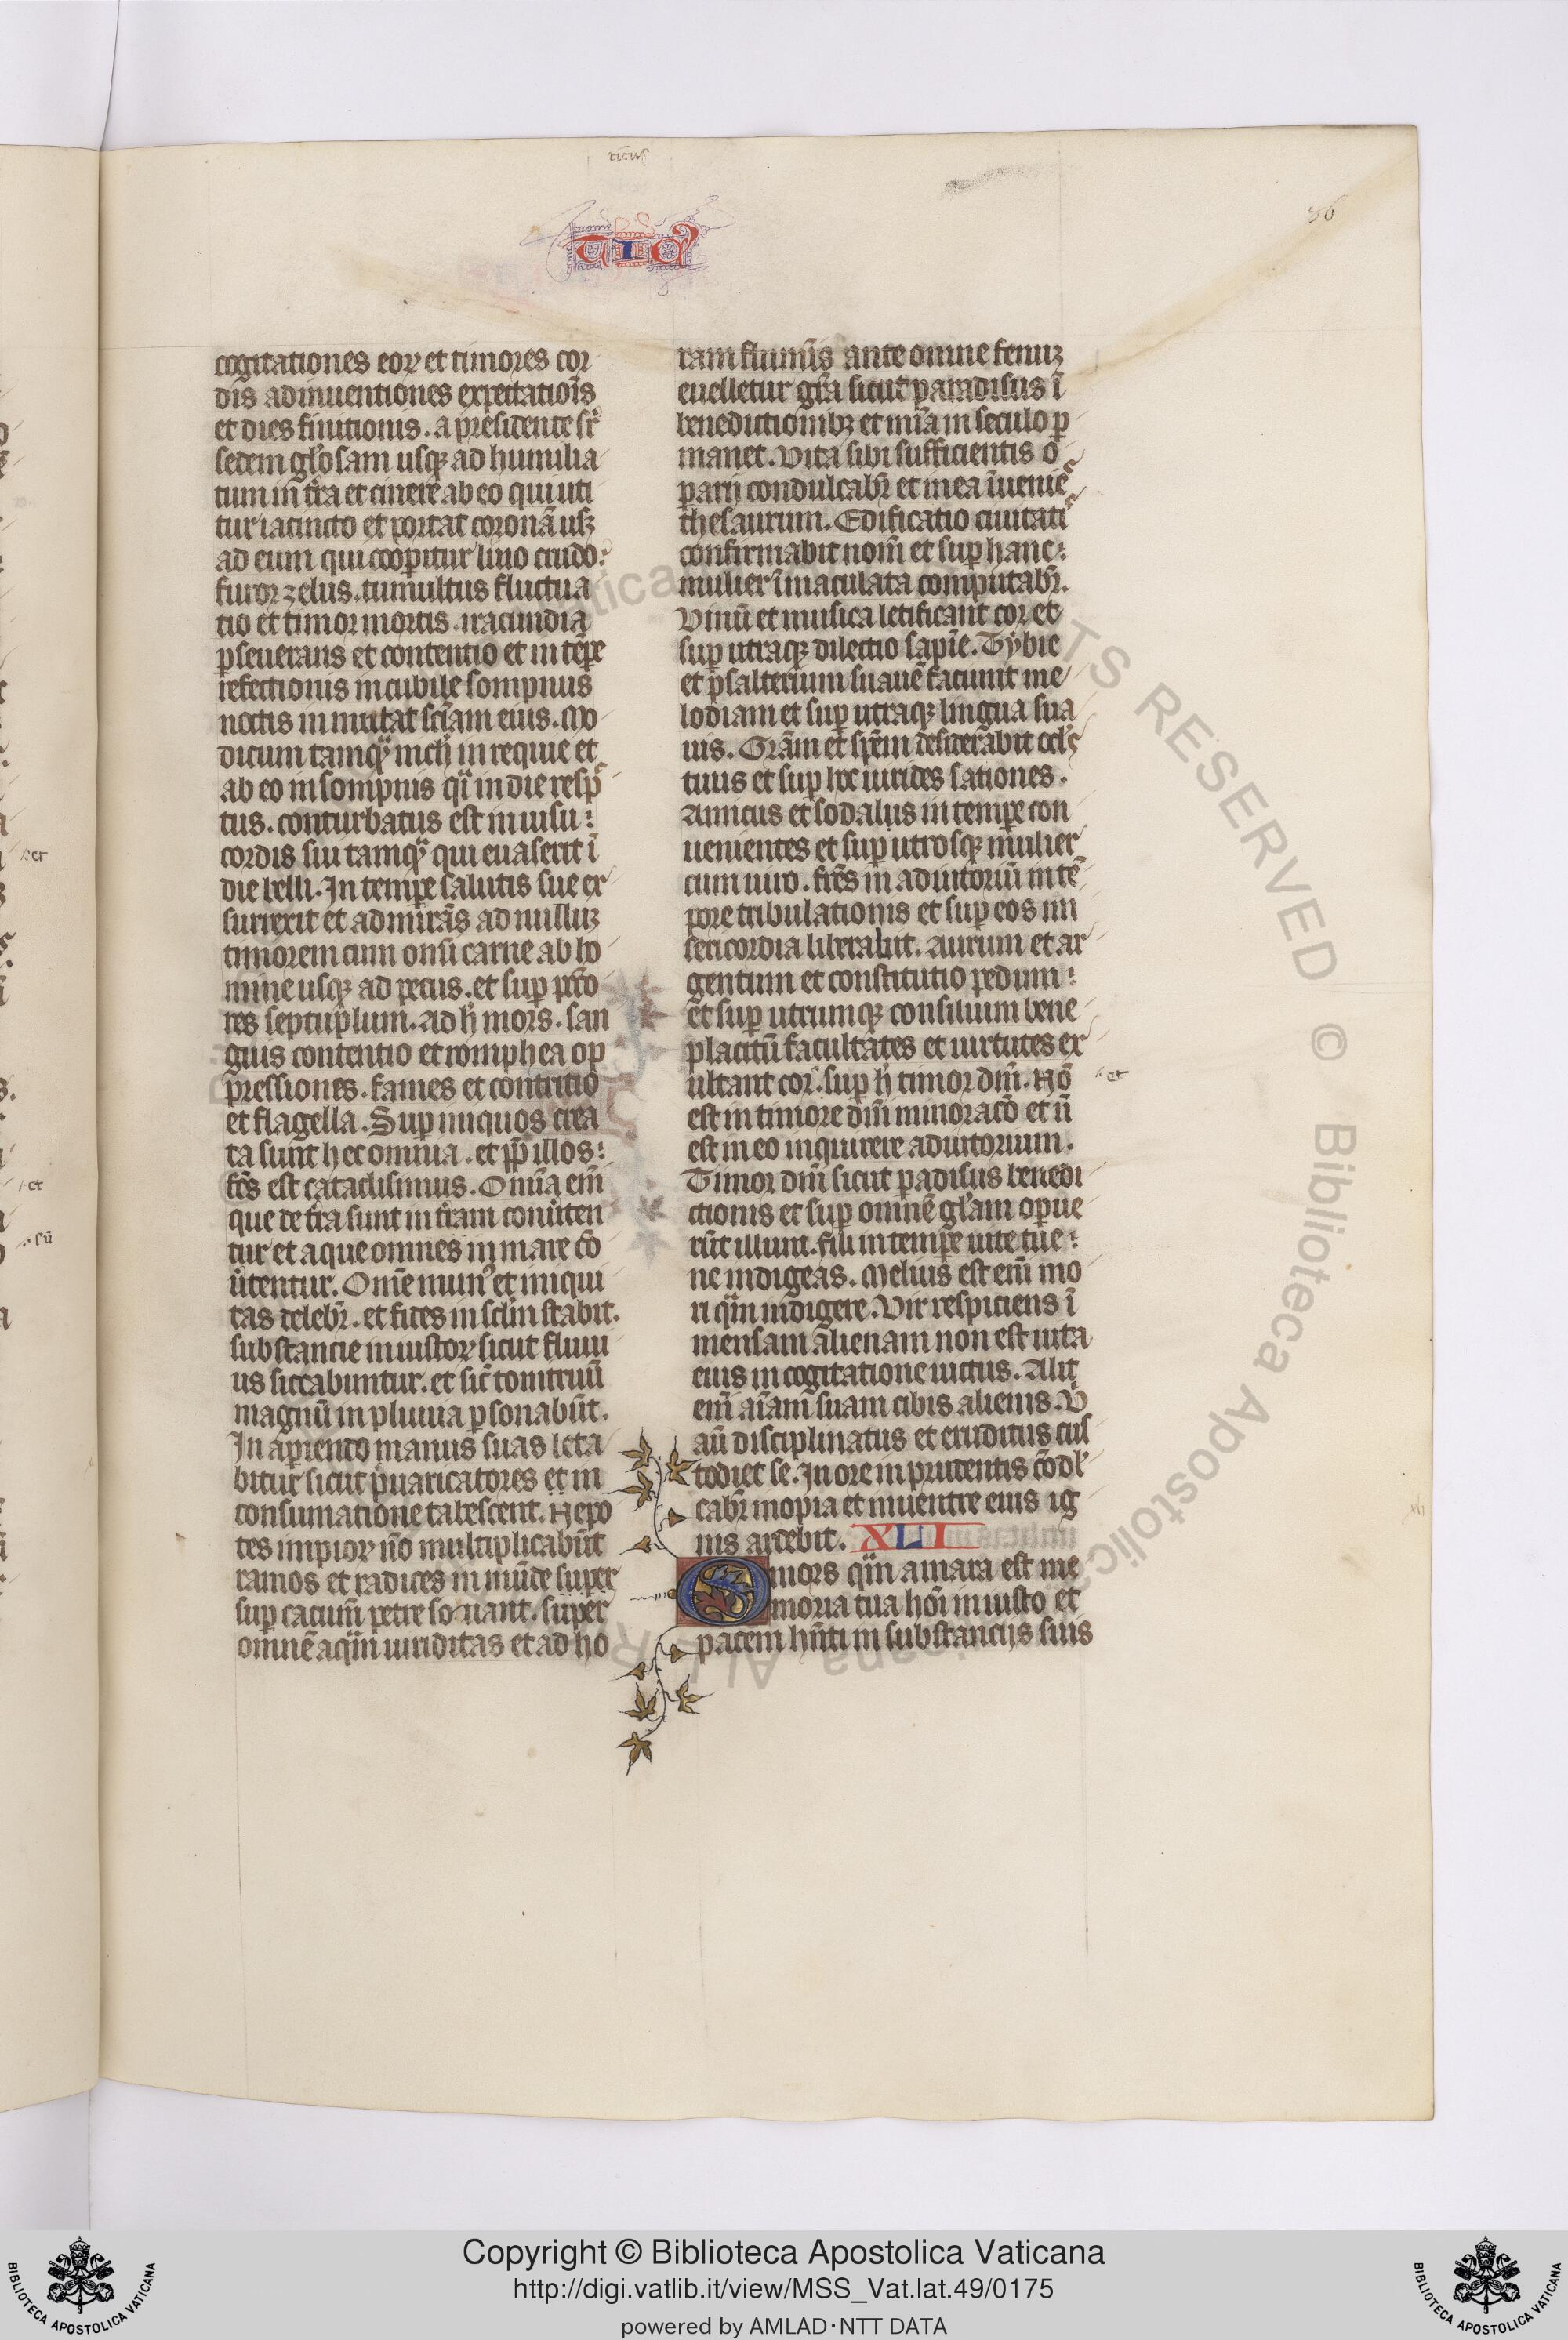 ticus
TICʼ
56
cogitationes eoꝝ et timores cor
dis adinuentiones expectatiōis
et dies finitionis . a presidente sr̄
sedem gl̓osam usqꝫ ad humilia
tum in t̓ra et cinerē ab eo qui uti
tur iacincto et portat coronā usqꝫ
ad eum qui coop̄itur lino crudo :
furor zelus . tumultus fluctua
tio et timor mortis . iracundia
ꝑseuerans et contentio et in tēꝑe
refectionis in cubile sompnus
noctis inmutat scīam eius . Mo
dicum tamqͣ nich̓ in requie et
ab eo in sompnis qͣi in die resp̄
tus . conturbatus est in uisu :
cordis sui tamqͣ qui euaserit ī
die belli . In tempe salutis sue ex
surrexit et admirās ad nullūꝫ
timorem cum om̄i carne ab ho
mine usqꝫ ad pecus . et suꝑ pc̄to
res septuplum . Ad h̄ mors . san
guis contentio et romphea op
pressiones . fames et contritio
et flagella . Suꝑ iniquos crea
ta sunt hec omnia . et ꝓp̄ illos :
fc̄s est cataclismus . Omīa em̄
que de t̓ra sunt in t̓ram conūten
tur et aque omnes in mare cō
ūtentur . Om̄e munꝰ et iniqui
tas delebr̄ . et fides in sc̄lm stabit .
substancie iniustoꝝ sicut fluui
us siccabuntur . et sic̄ tonitruū
magnū in pluuia ꝑsonabūt .
In aꝑiendo manus suas leta
bitur sicut p̄uaricatores et in
consumatione tabescent . Nepo
tes impioꝝ nō multiplicabūt
ramos et radices inmūde super
suꝑ cacum̄ petre sonant . super
omnē aqͣm uiriditas et ad ho
ram fluminis ante omne fenuꝫ
euelletur gr̄a sicut paradisus ī
benedictionibꝫ et mīa in seculo ꝑ
manet . Vita sibi sufficientis o
ꝑarij condulcabr̄ et in ea īueniēs
thesaurum . Edificatio ciuitatis
confirmabit nom̄ et suꝑ hanc :
mulier īmaculata computabr̄ .
Vinū et musica letificant cor et
suꝑ utraqꝫ dilectio sapīe . Tybie
et psalterium suauē faciunt me
lodiam et suꝑ utraqꝫ lingua sua
uis . Grām et spēm desiderabit ocl̓s
tuus et suꝑ hec uirides sationes .
Amicus et sodalus in tempe con
uenientes et suꝑ utrosqꝫ mulier
cum uiro . frēs in adiutoriū in tē
pore tribulationis et suꝑ eos mi
sericordia liberabit . Aurum et ar
gentum et constitutio pedum :
et suꝑ utrumqꝫ consilium bene
placitū facultates et uirtutes ex
ultant cor . suꝑ h̄ timor dn̄i . Nō
est in timore dn̄i minoracō et n̄
est in eo inquirere adiutorium .
Timor dn̄i sicut padisus benedi
ctionis et suꝑ omnē gl̓am oꝑue
rūt illum . fili in tempe uite tue :
ne indigeas . Melius est em̄ mo
ri qͣm indigere . Vir respiciens ī
mensam alienam non est uita
eius in cogitatione uictus . Alit
em̄ aīam suam cibis alienis . V̓
aū disciplinatus et eruditus cus
todiet se . In ore inprudentis cōdl̓
cabr̄ inopia et in uentre eius ig
nis ardebit . XLI
O mors qͣm amara est me
moria tua hōi iniusto et
pacem hn̄ti in substancijs suis
et
et
sū
et
Copyright © Biblioteca Apostolica Vaticana
http://digi.vatlib.it/view/MSS_Vat.lat.49/0175
powered by AMLAD·NTT DATA
BIBLIOTECA APOSTOLICA VATICANA
BIBLIOTECA APOSTOLICA VATICANA